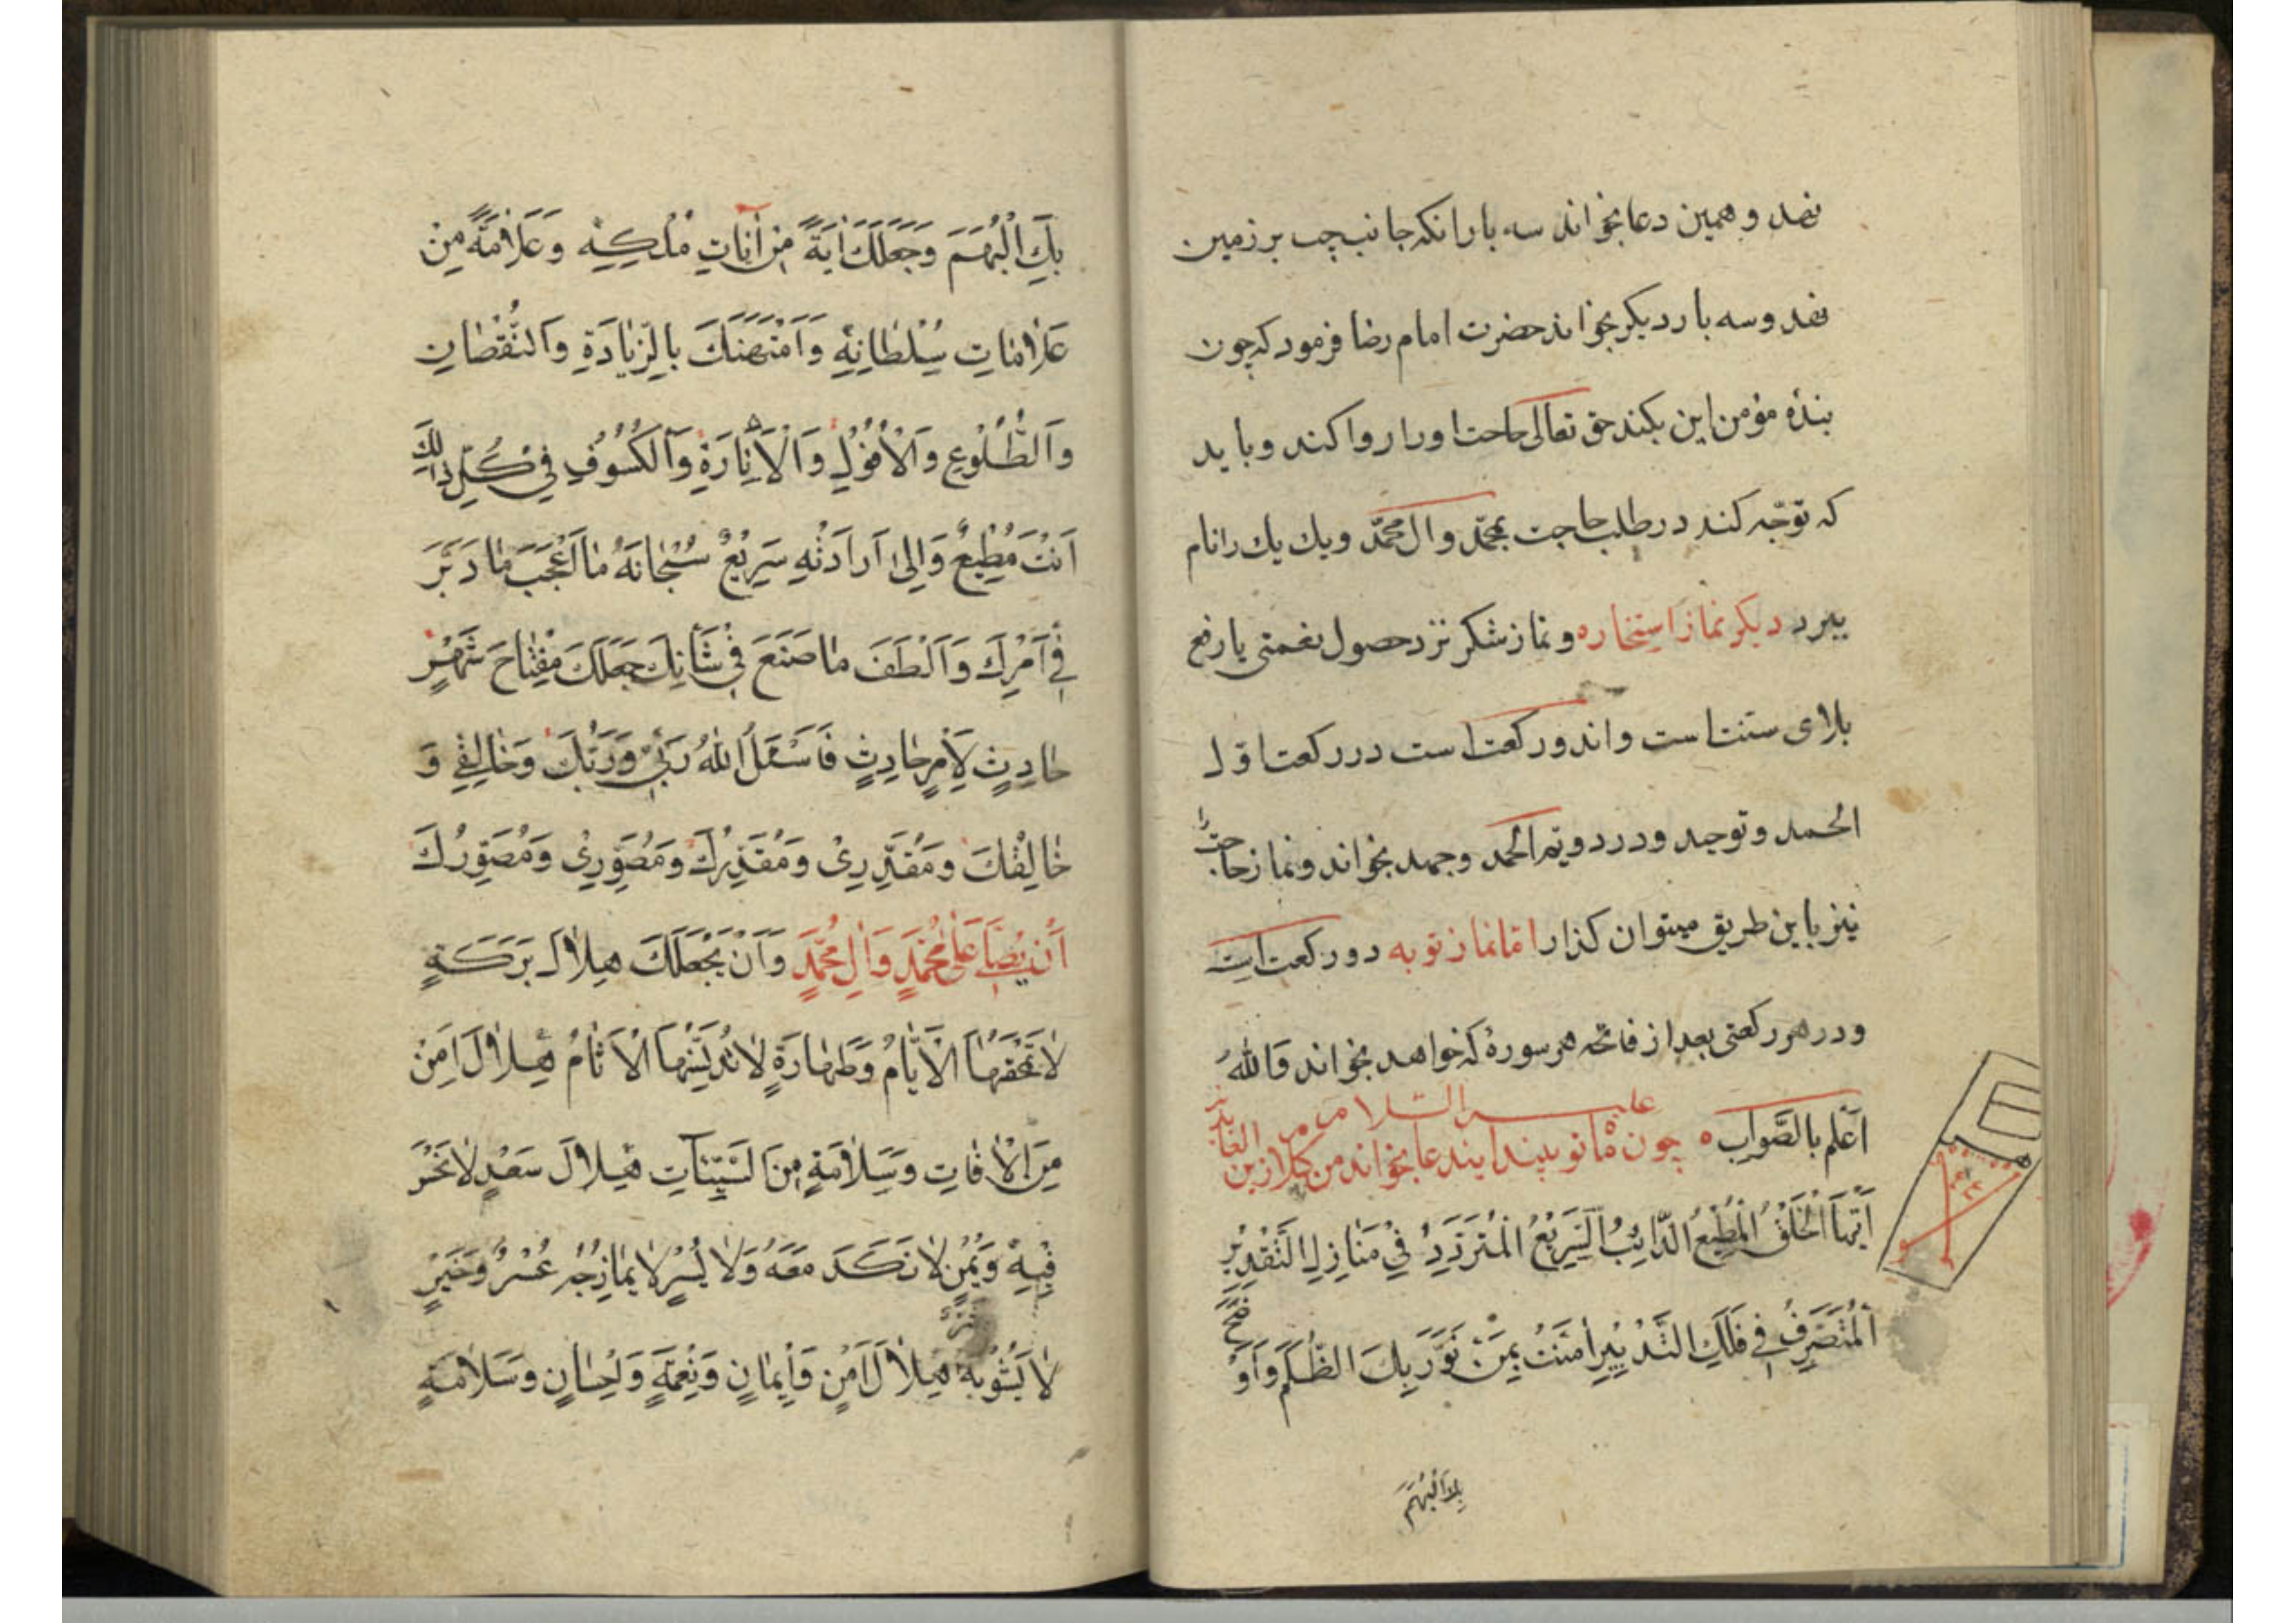 نهد و همین دعا بخواند سه بار انکه جانب چپ بر زمین
نهد و سه بار دیکر بخواند حضرت امام رضا فرمود که چون
بندهٔ مؤمن این بکند حق تعالی حاجت او را روا کند و باید
که توجّه کند در طلب حاجت بمحمّد وال محمّد و یك یك را نام
ببرد دیکر نماز استخاره و نماز شکر نزد حصول نعمتی یا رفع
بلای سنت است و ان دو رکعت است در رکعت اوّل
الحمد و توحید و در دویم الحمد و جحد بخواند و نماز حاجت را
نیز باین طریق میتوان کذارد امّا نماز توبه دو رکعت است
و در هر رکعتی بعد از فاتحه هر سورهٔ که خواهد بخواند وَاللهُ
اَعْلم بالصَّواب چون ماه نو بیند این دعا بخواند من کلام زین العابدین
علیه السلام
اَیُّهَا الْخَلْقُ الْمُطِیْعُ الدَّائِبُ السَّرِیْعُ الْمُتَرَدِّدُ فِیْ مَنَازِلِ التَّقْدِیْرِ
اَلْمُتَصَرِّفُ فِیْ فَلَكِ التَّدْبِیْرِ اٰمَنْتُ بِمَنْ نَوَّرَ بِكَ الظُّلَمَ وَاَوْضَحَ
بِكَ الْبُهَمَ
بِكَ الْبُهَمَ وَجَعَلَكَ اٰیَةً مِنْ اٰیَاتِ مُلْكِهِ وَعَلَامَةً مِنْ
عَلَامَاتِ سُلْطَانِهِ وَامْتَهَنَكَ بِالزِّیَادَةِ وَالنُّقْصَانِ
وَالطُّلُوْعِ وَالْاُفُوْلِ وَالْاِنَارَةِ وَالْكُسُوْفِ فِیْ كُلِّ ذٰلِكَ
اَنْتَ مُطِیْعٌ وَاِلٰی اَرَادَتِهِ سَرِیْعٌ سُبْحَانَهُ مَا اَعْجَبَ مَا دَبَّرَ
فِیْ اَمْرِكَ وَاَلْطَفَ مَا صَنَعَ فِیْ شَأْنِكَ جَعَلَكَ مِفْتَاحَ شَهْرٍ
حَادِثٍ لِاَمْرٍ حَادِثٍ فَاَسْئَلُ اللهَ رَبِّیْ وَرَبَّكَ وَخَالِقِیْ وَ
خَالِقَكَ وَمُقَدِّرِیْ وَمُقَدِّرَكَ وَمُصَوِّرِیْ وَمُصَوِّرَكَ
اَنْ یُصَلِّیَ عَلٰی مُحَمَّدٍ وَاٰلِ مُحَمَّدٍ وَاَنْ یَجْعَلَكَ هِلَالَ بَرَكَةٍ
لَا تَمْحَقُهَا الْاَیَّامُ وَطَهَارَةٍ لَا تُدَنِّسُهَا الْاٰثَامُ هِلَالَ اَمْنٍ
مِنَ الْاٰفَاتِ وَسَلَامَةٍ مِنَ السَّیِّئَاتِ هِلَالَ سَعْدٍ لَا نَحْسَ
فِیْهِ وَیُمْنٍ لَا نَكَدَ مَعَهُ وَلَا یُسْرٍ لَا یُمَازِجُهُ عُسْرٌ وَخَیْرٍ
لَا یَشُوْبُهُ شَرٌّ هِلَالَ اَمْنٍ وَاِیْمَانٍ وَنِعْمَةٍ وَاِحْسَانٍ وَسَلَامَةٍ